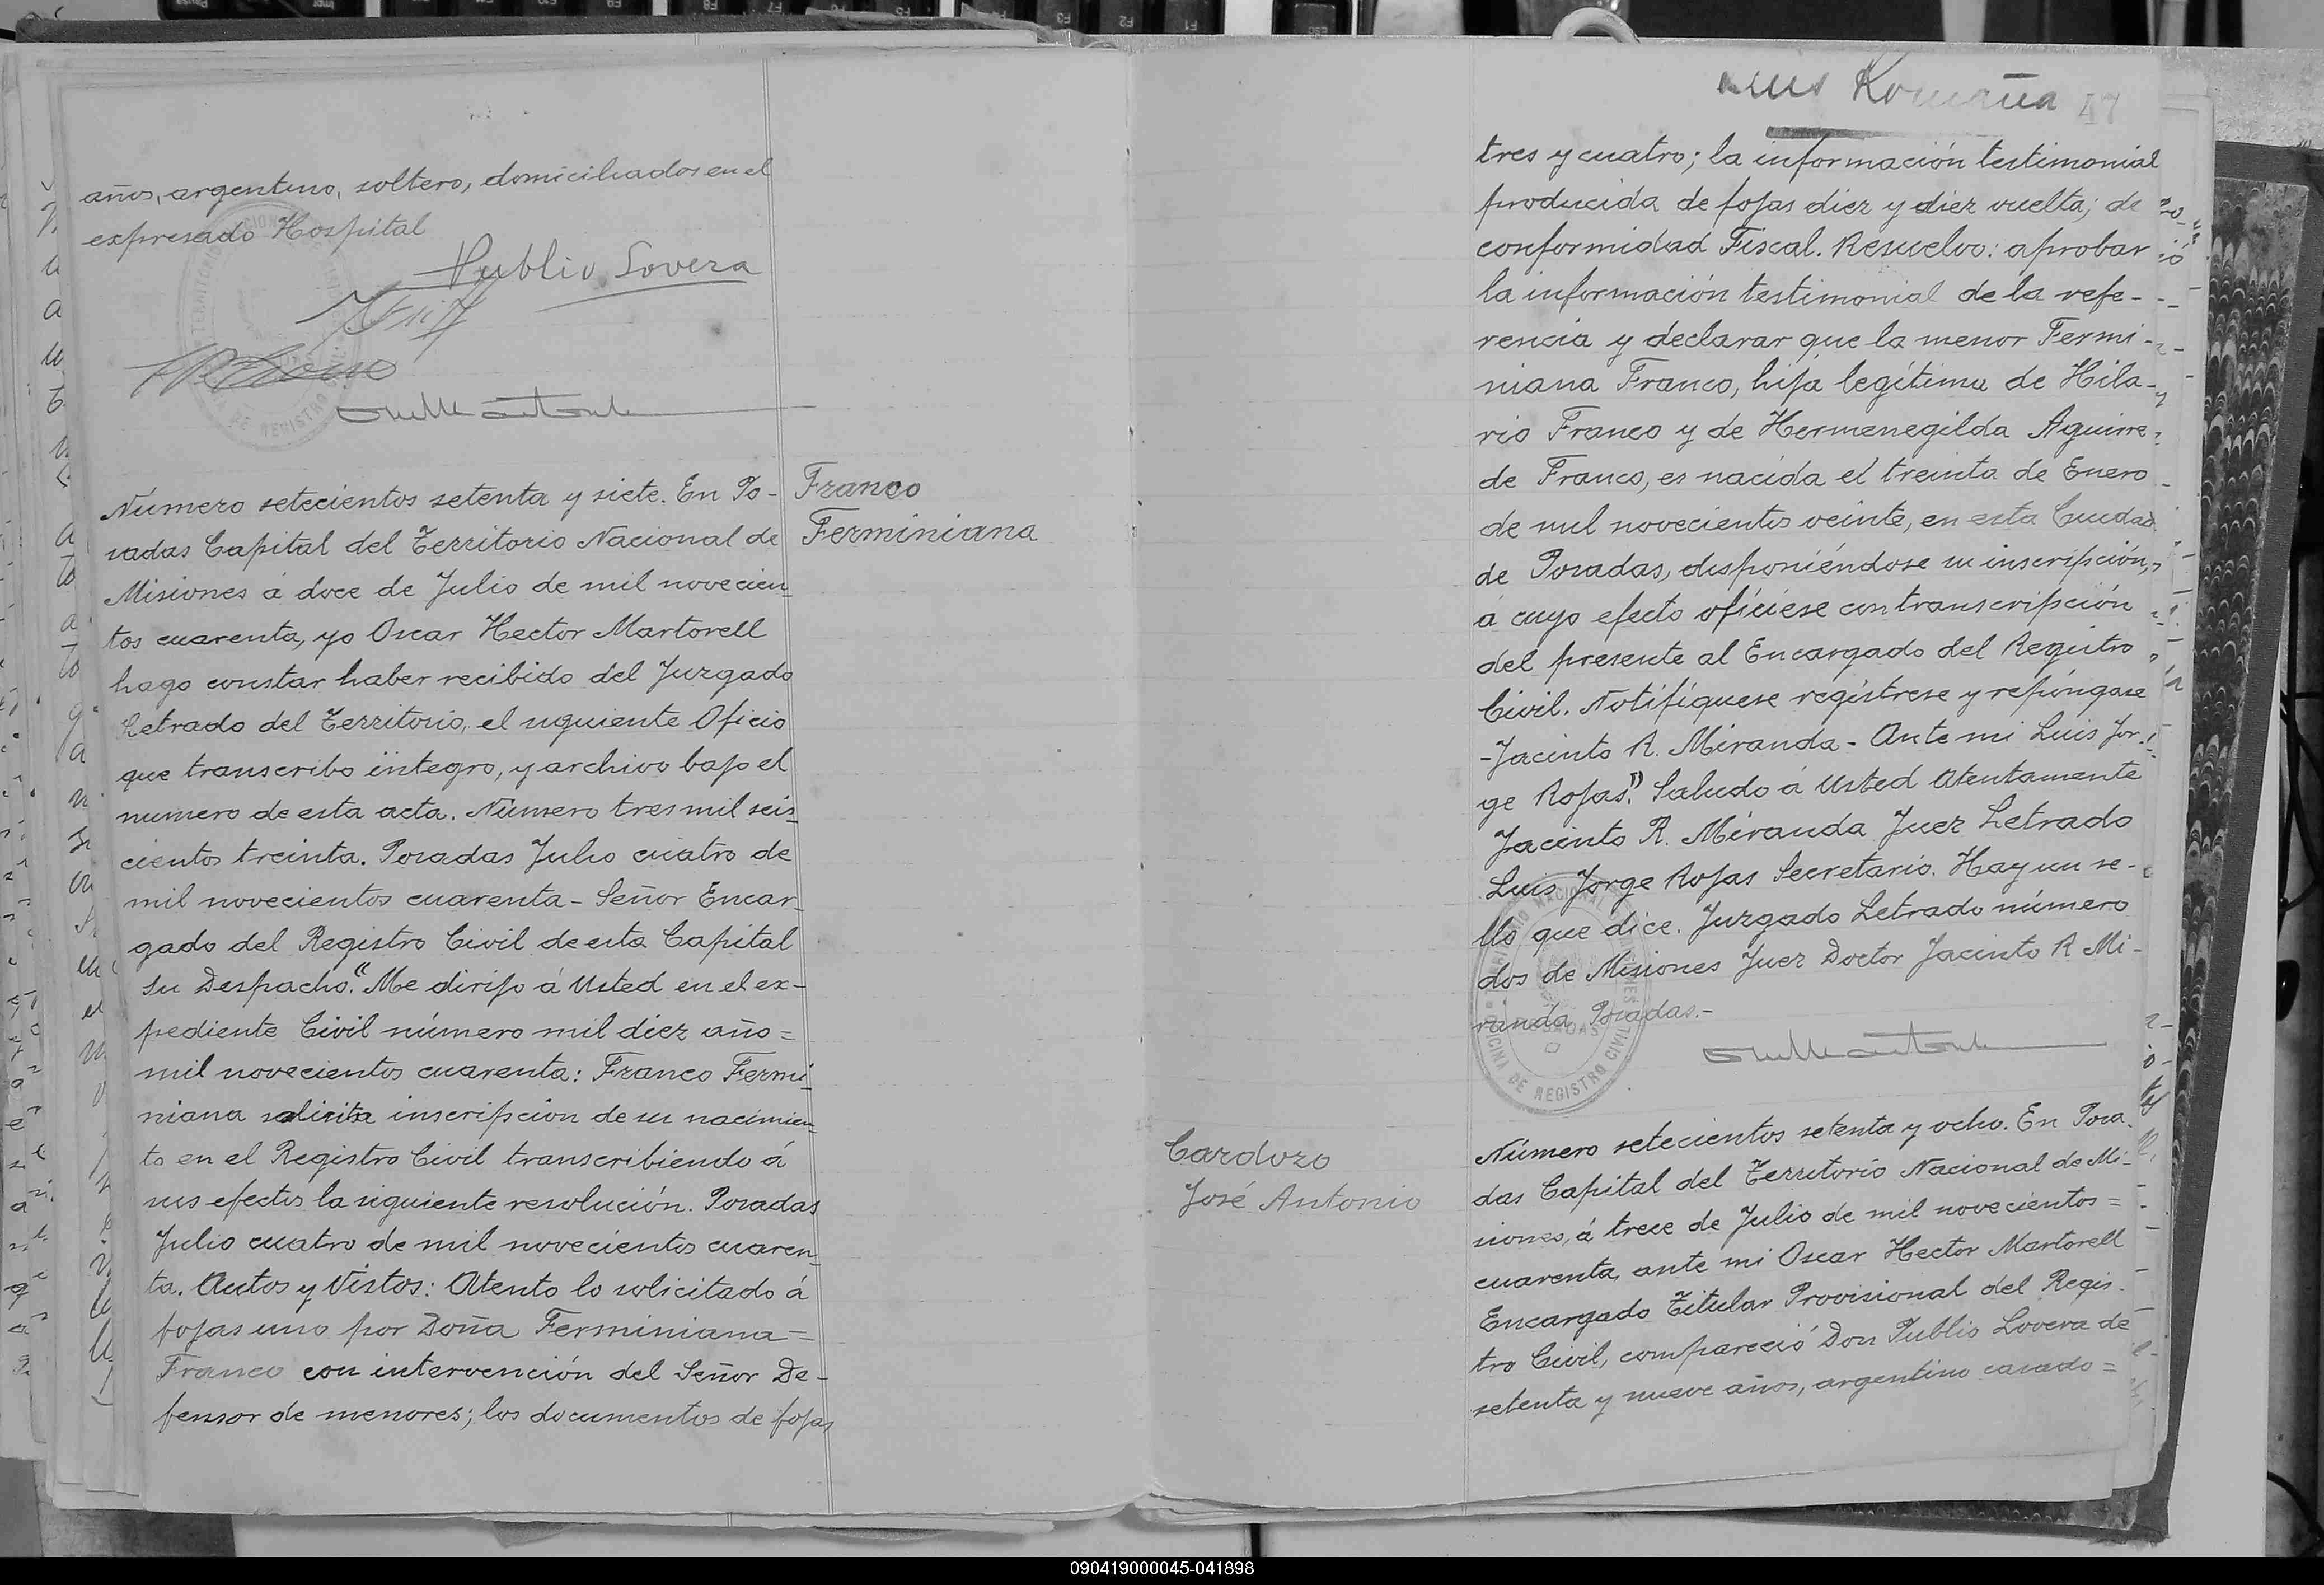 años, argentino, soltero, domiciliados en el
expresado Hospital
Publio Lovera
Número setecientos setenta y siete. En Po-
sadas Capital del Territorio Nacional de
Misiones á doce de Julio de mil novecien
tos cuarenta, yo Oscar Hector Martorell
hago constar haber recibido del Juzgado
Letrado del Territorio, el siguiente Oficio
que transcribo integro, y archivo bajo el
numero de esta acta. Número tres mil seis
cientos treinta. Posadas Julio cuatro de
mil novecientos cuarenta - Señor Encar
gado del Registro Civil de esta Capital
Su Despacho. "Me dirijo á Usted en el ex-
pediente Civil número mil diez año=
mil novecientos cuarenta: Franco Fermi
niana solicita inscripcion de su nacimien
to en el Registro Civil transcribiendo á
sus efectos la siguiente resolución. Posadas
Julio cuatro de mil novecientos cuaren
ta. Autos y Vistos: Atento lo solicitado á
fojas uno por Doña Ferminiana=
Franco con intervención del Señor De-
fensor de menores; los documentos de fojas
Franco
Ferminiana
Luis Romaña 47
tres y cuatro; la información testimonial
producida de fojas diez y diez vuelta; de
conformidad Fiscal. Resuelvo: aprobar
la información testimonial de la refe-
rencia y declarar que la menor Fermi-
niana Franco, hija legítima de Hila-
rio Franco y de Hermenegilda Aguirre
de Franco, es nacida el treinta de Enero
de mil novecientos veinte, en esta Ciudad
de Posadas, disponiéndose su inscripción,
á cuyo efecto ofíciese con transcripción
del presente al Encargado del Registro
Civil. Notifíquese regístrese y repóngase
-Jacinto R. Miranda - Ante mi Luis Jor-
ge Rojas." Saludo á Usted Atentamente
Jacinto R. Miranda Juez Letrado
Luis Jorge Rojas Secretario. Hay un se-
llo que dice. Juzgado Letrado número
dos de Misiones Juez Doctor Jacinto R Mi-
randa Posadas.-
OFICINA DE REGISTRO CIVIL
Cardozo
José Antonio
Número setecientos setenta y ocho. En Posa
das Capital del Territorio Nacional de Mi-
siones, á trece de Julio de mil novecientos=
cuarenta, ante mi Oscar Hector Martorell
Encargado Titular Provisional del Regis-
tro Civil, compareció Don Publio Lovera de
setenta y nueve años, argentino casado=
090419000045-041898